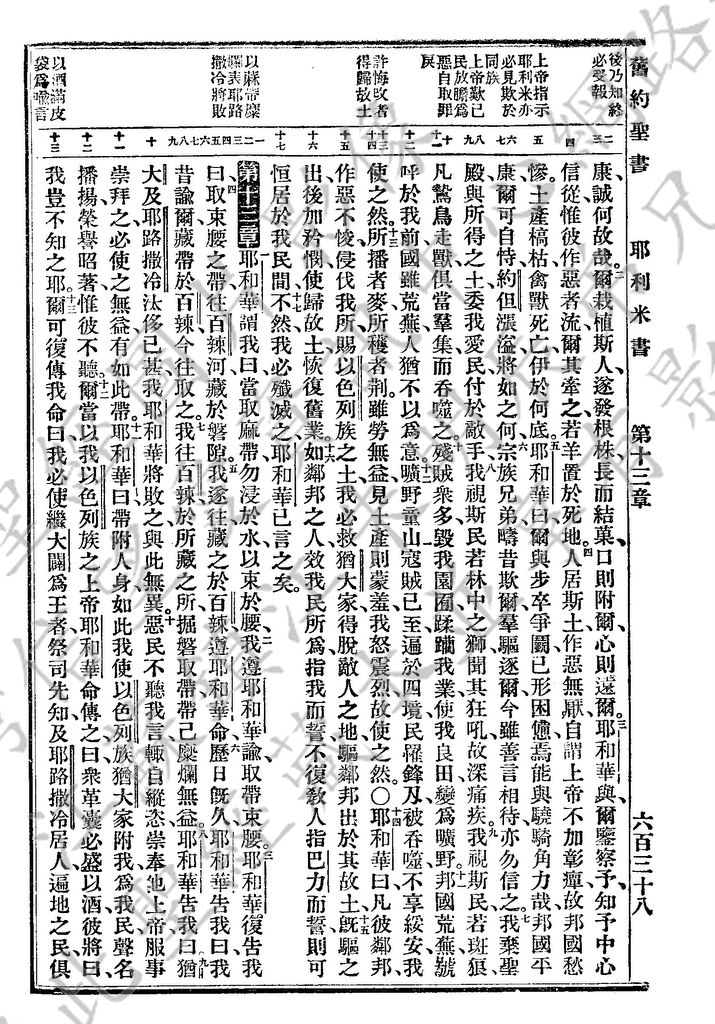 舊約聖書 耶利米書 第十三章 六百三十八
後乃知終
必受報
上帝指示
耶利米亦
必見欺於
同族
上帝歎已
民放膽爲
惡自取罪
戾
許悔改者
得歸故土
以麻帶糜
爛表耶路
撒冷將敗
以酒滿皮
袋爲喩言
康誠何故哉二爾栽植斯人遂發根株長而結菓口則附爾心則遠爾三耶和華與爾鑒察予知予中心
信從惟彼作惡者流爾其牽之若羊置於死地四人居斯土作惡無厭自謂上帝不加彰癉故邦國愁
慘土產槁枯禽獸死亡伊於何底五耶和華曰爾與步卒爭鬬已形困憊焉能與驍騎角力哉邦國平
康爾可自恃約但漲溢將如之何六宗族兄弟疇昔欺爾羣驅逐爾今雖善言相待亦勿信之七我棄聖
殿與所得之土委我愛民付於敵手八我視斯民若林中之獅聞其狂吼故深痛疾九我視斯民若斑狼
凡鷙鳥走獸俱當羣集而吞噬之十殘賊衆多毀我園囿蹂躪我業使我良田變爲曠野十一邦國荒蕪號
呼於我前國雖荒蕪人猶不以爲意十二曠野童山寇賊已至遍於四境民罹鋒刃被吞噬不享綏安我
使之然十三所播者麥所穫者荆雖勞無益見土產則蒙羞我怒震烈故使之然〇十四耶和華曰凡彼鄰邦
作惡不悛侵伐我所賜以色列族之土我必救猶大家得脫敵人之地驅鄰邦出於其故土十五旣驅之
出後加矜憫使歸故土恢復舊業十六如鄰邦之人效我民所爲指我而誓不復敎人指巴力而誓則可
恒居於我民間十七不然我必殲滅之耶和華已言之矣。
第十三章 耶和華謂我曰當取麻帶勿浸於水以束於腰二我遵耶和華諭取帶束腰三耶和華復告我
曰四取束腰之帶往百辣河藏於磐隙五我遂往藏之於百辣遵耶和華命六歷日旣久耶和華告我曰我
昔諭爾藏帶於百辣今往取之七我往百辣於所藏之所掘磐取帶帶已糜爛無益八耶和華告我曰九猶
大及耶路撒冷汰侈已甚我耶和華將敗之與此無異十惡民不聽我言輒自縱恣崇奉他上帝服事
崇拜之必使之無益有如此帶十一耶和華曰帶附人身如此我使以色列族猶大家附我爲我民聲名
播揚榮譽昭著惟彼不聽十二爾當以我以色列族之上帝耶和華命傳之曰衆革囊必盛以酒彼將曰
我豈不知之耶十三爾可復傳我命曰我必使繼大闢爲王者祭司先知及耶路撒冷居人遍地之民俱